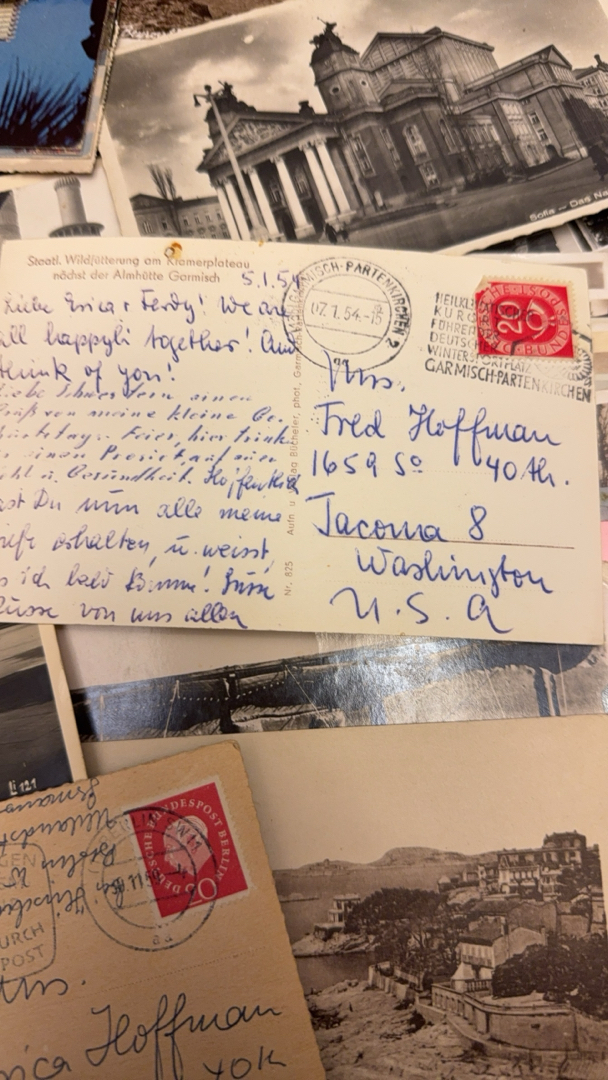 Sofia — Das Na
Staatl. Wildfütterung am Kramerplateau
nächst der Almhütte Garmisch
5.1.54
Liebe Erica + Ferdy! We are
all happyli together! And
think of you!
einen
Gruß von meine kleine Ge
burtstag - Feier, hier trink
einen Prosit auf
u. Gesundheit.
ast Du nun alle meine
riefe erhalten, u. weisst,
s ich bald komme!
üsse von uns allen
Nr. 825 Aufn u Verlag Bücheler, phot, Garmisch
GARMISCH-PARTENKIRCHEN 2
07.1.54.-15
HEILKL
KURO
FÜHREN
DEUTSCHE
WINTERSPORTPLATZ
GARMISCH-PARTENKIRCHEN
20
Mrs.
Fred Hoffman
1659 So 40th.
Tacoma 8
Washington
U.S.A
Li 121
DEUTSCHE BUNDESPOST BERLIN
20
BERLIN SW11
11.59
Berlin
GEN
URCH
POST
Mrs.
rica Hoffman
40th